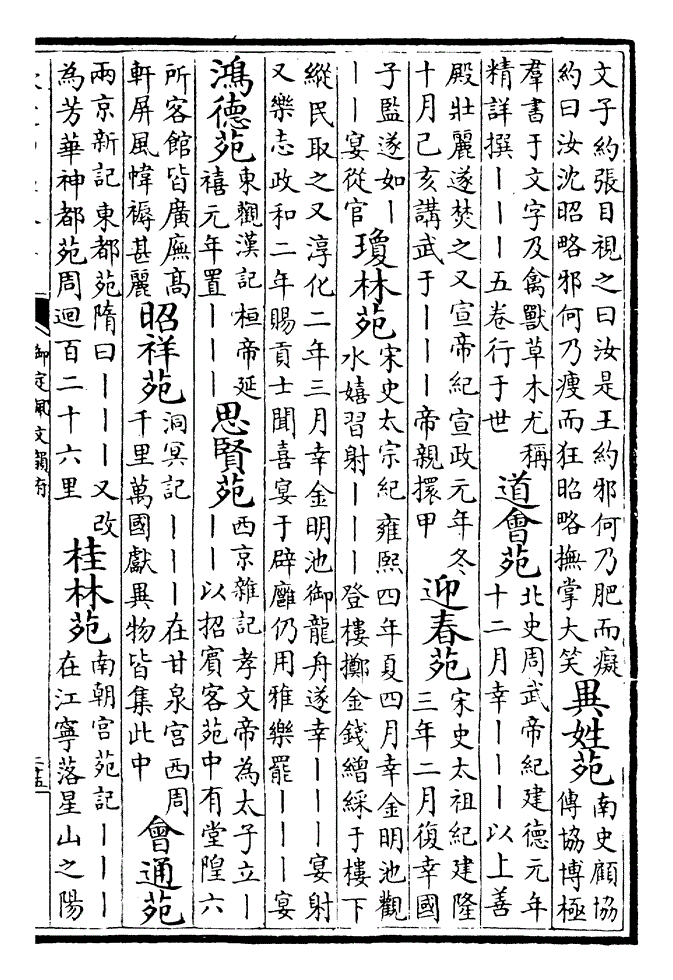 文子約張目視之曰汝是王約邪何乃肥而癡
約曰汝沈昭略邪何乃瘦而狂昭略撫掌大笑
異姓苑
南史顧協
傳協博極
羣書于文字及禽獸草木尤稱
精詳撰｜｜｜五卷行于世
道會苑
北史周武帝紀建德元年
十二月幸｜｜｜以上善
殿壯麗遂焚之又宣帝紀宣政元年冬
十月己亥講武于｜｜｜帝親擐甲
迎春苑
宋史太祖紀建隆
三年二月復幸國
子監遂如｜
｜｜宴從官
瓊林苑
宋史太宗紀雍熙四年夏四月幸金明池觀
水嬉習射｜｜｜登樓擲金錢繒綵于樓下
縱民取之又淳化二年三月幸金明池御龍舟遂幸｜｜｜宴射
又樂志政和二年賜貢士聞喜宴于辟廱仍用雅樂罷｜｜｜宴
鴻德苑
東觀漢記桓帝延
禧元年置｜｜｜
思賢苑
西京雜記孝文帝為太子立｜
｜｜以招賓客苑中有堂隍六
所客館皆廣廡高
軒屏風幃褥甚麗
昭祥苑
洞冥記｜｜｜在甘泉宮西周
千里萬國獻異物皆集此中
會通苑
兩京新記東都苑隋曰｜｜｜又改
為芳華神都苑周迴百二十六里
桂林苑
南朝宮苑記｜｜｜
在江寧落星山之陽
御定佩文韻府